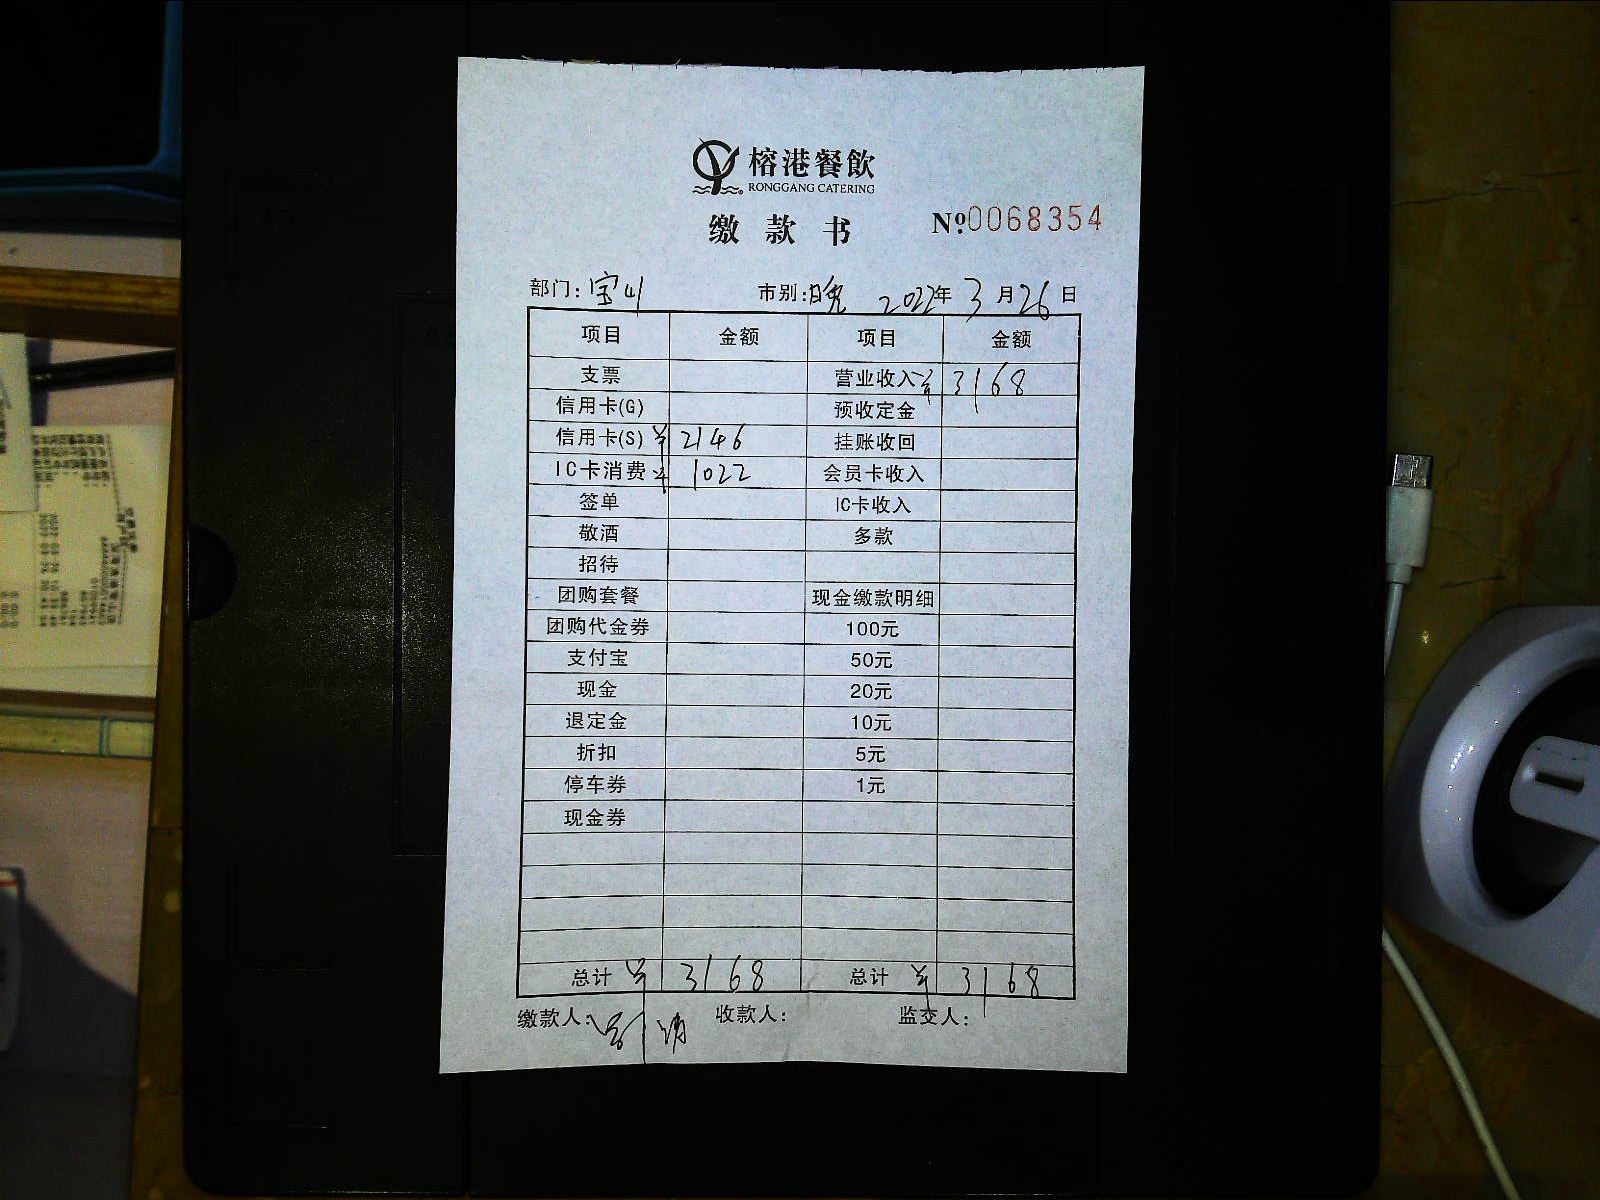 榕港餐飲
RONGGANG CATERING
缴款书 Nº:0068354
部门:宝山 市别:晚 2022年3月26日
项目 金额 项目 金额
支票 营业收入 ¥ 3168
信用卡(G) 预收定金
信用卡(S) ¥ 2146 挂账收回
IC卡消费 ¥ 1022 会员卡收入
签单 IC卡收入
敬酒 多款
招待
团购套餐 现金缴款明细
团购代金券 100元
支付宝 50元
现金 20元
退定金 10元
折扣 5元
停车券 1元
现金券
总计 ¥ 3168 总计 ¥ 3168
缴款人: 收款人: 监交人: